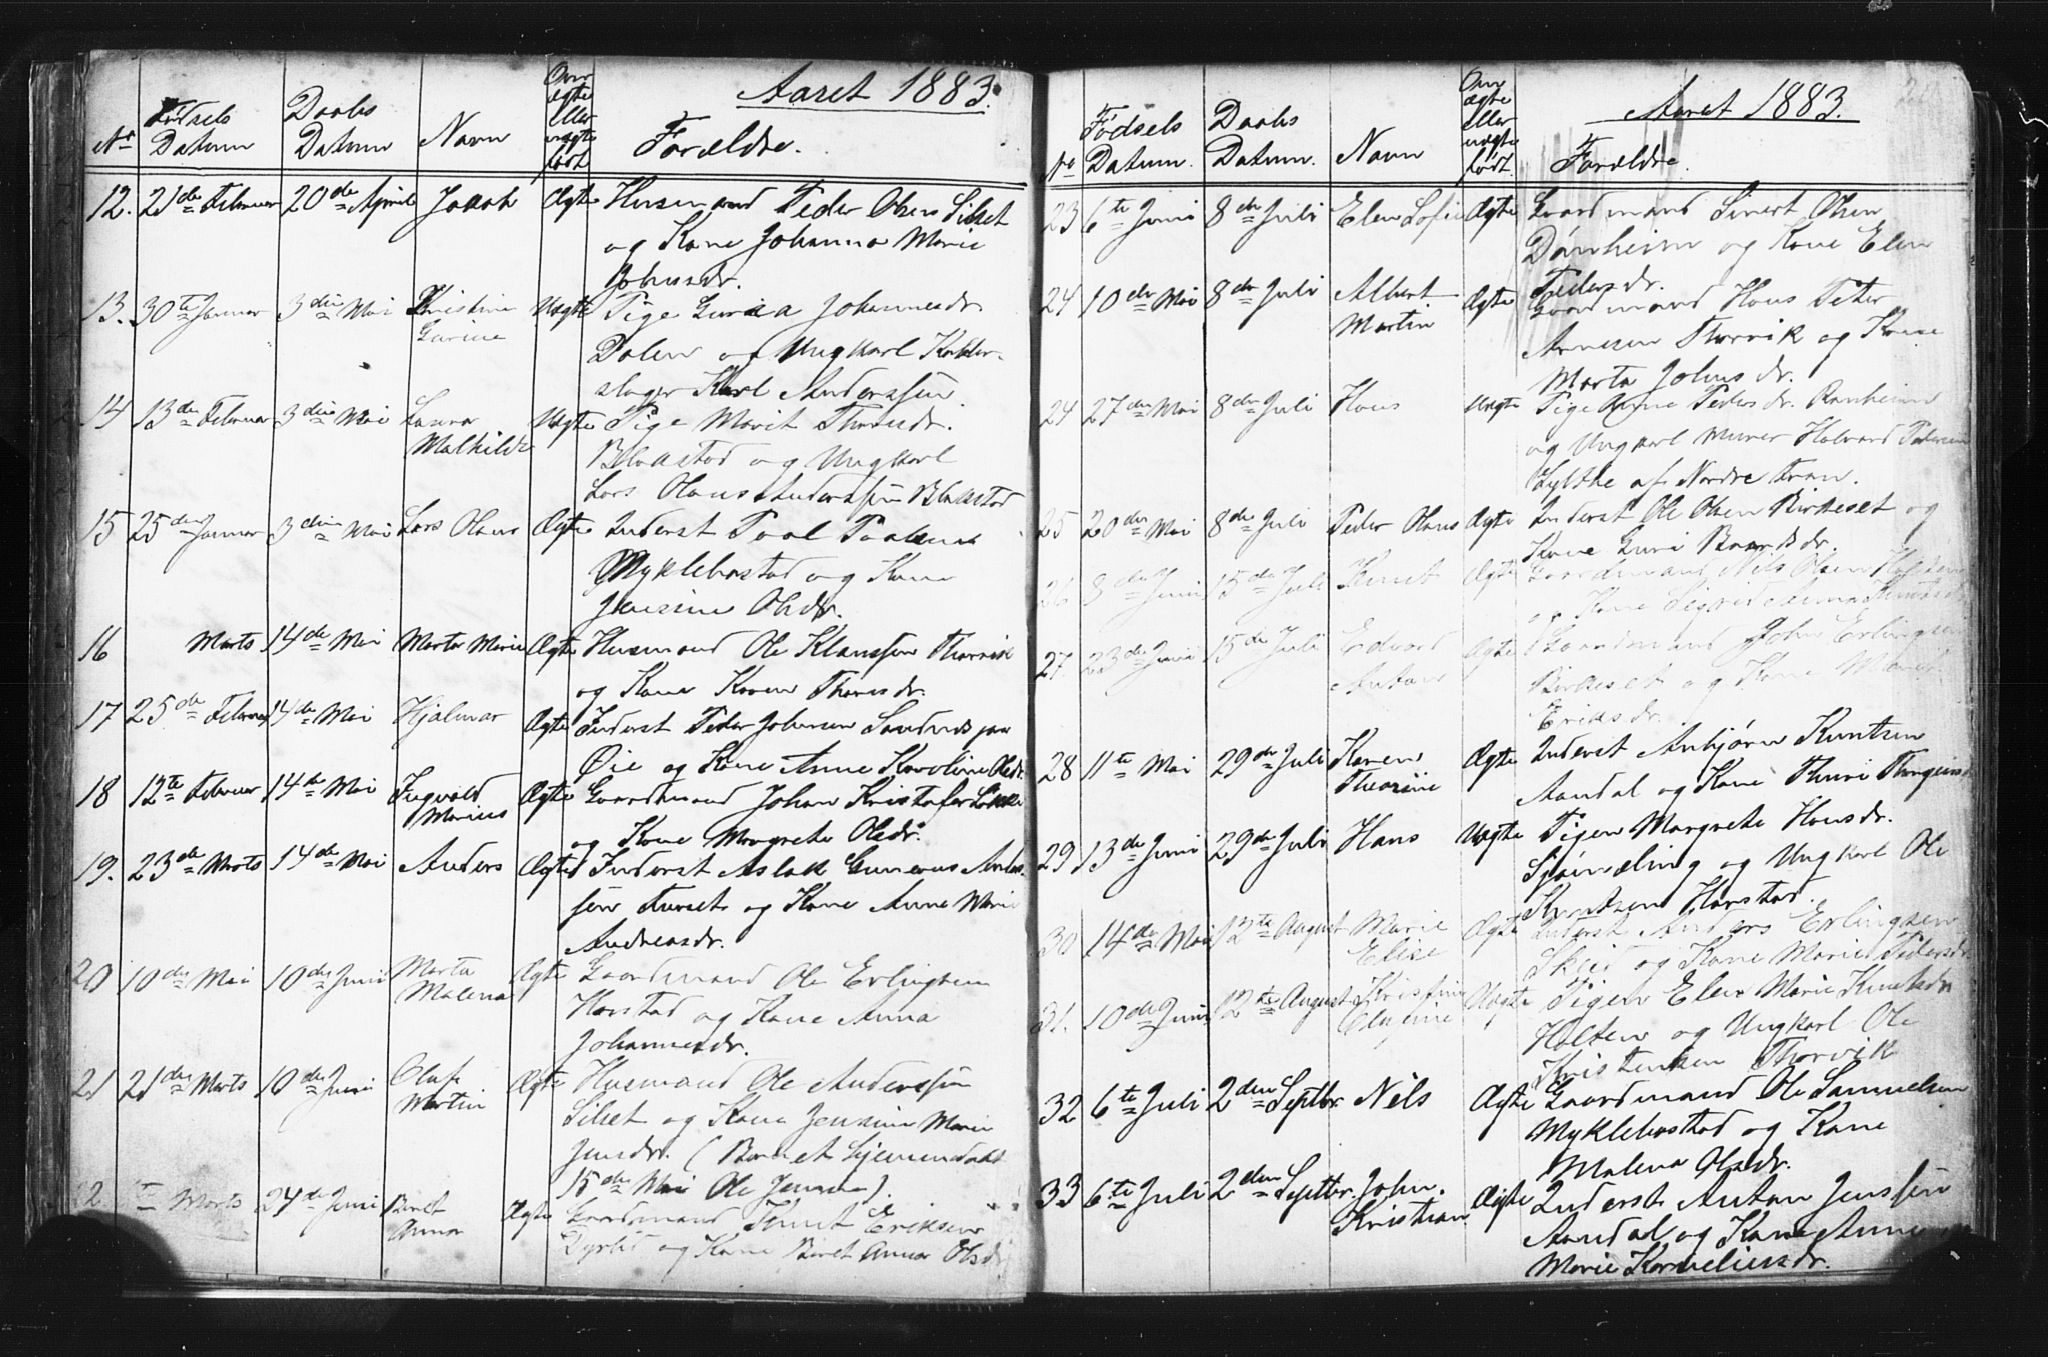 Aaret 1883.
No Fødsels Datum Daabs Datum Navn Om ægte eller uægte født Forældre.
12. 21de Februar 20de April Jakob Ægte Husmand Peder Olsen Silset
og Kone Johanna Marie
Johnsdr.
13. 30te Januar 3die Mai Kristine Uægte Pige Johannesdr.
Gurine Dalen og Ungkarl Kobber-
slager Karl Anderssen
14 13de Februar 3die Mai Laura Uægte Pige Marit
Mathilde Blakstad og Ungkarl
Lars Olaus Anderssen Blakstad
15 25de Januar 3die Mai Lars Olaus Ægte Inderst Poal
Myklebostad og Kone
Jensine Olsdr.
16 Marts 14de Mai Marta Marie Ægte Husmand Ole Klaussen Thorvik
og Kone Karen Thoresdr.
17 25de Februar 14de Mai Hjalmar Ægte Inderst Peder Johnsen Sandnes paa
Øie og Kone Anne Karoline Olsdr.
18 12te Februar 14de Mai Ingvald Ægte Gaardmand Johan Kristofer
Marius og Kone Margrete Olsdr.
19. 23de Marts 14de Mai Anders Ægte Inderst Aslak Gunerius Anders-
sen og Kone Anne Marie
Andreasdr.
20 10de Mai 10de Juni Marta Ægte Gaardmand Ole Erlingsen
Malena Harstad og Kone Anna
Johannesdr.
21 21de Marts 10de Juni Oluf Ægte Husmand Ole Anderssen
Martin Silset og Kone Jensine Marie
Jensdr. (Barnet hjemmedøbt
15de Mai Ole Jensen).
Marts 24de Juni Beret Ægte Gaardmand Knut Eriksen
Anna og Kone Beret Anna Olsdr.
Aaret 1883.
No Fødsels Datum. Daabs Datum. Navn Om ægte eller uægte født. Forældre.
23 6te Juni 8de Juli Elen Sofie Ægte Gaardmand Sivert Olsen
og Kone Elen
Pedersdr.
24 10de Mai 8de Juli Albert Ægte Gaardmand Hans Peter
Martin Arnesen Thorvik og Kone
Marta Johnsdr.
24 27de Mai 8de Juli Hans Uægte Pige Anne Pedersdr. Ranheim
og Ungkarl Murer Halvard Pedersen
af Nordre Fron.
25 20de Mai 8de Juli Peder Olaus Ægte Inderst Ole Olsen Birkeset og
Kone Guri Baardsdr.
26 8de Juni 15de Juli Knut Ægte Gaardmand Nils Olsen Holten
og Kone Sigrid Anna Knutsdr.
27. 23de Juni 15de Juli Edvard Ægte Gaardmand John Erlingsen
Anton Birkeset og Kone Marit
Eriksdr.
28 11te Mai 29de Juli Karen Ægte Inderst Anbjørn Knutsen
Theorine Aandal og Kone Thuri
29 13de Juni 29de Juli Hans Uægte Pigen Margrete Hansdr.
og Ungkarl Ole
Knutsen Harstad.
30 14de Mai 12te August Marie Ægte Inderst Anders Erlingsen
Elise Skeid og Kone Marie Pedersdr.
31. 10de Juni 12te August Kristine Uægte Pigen Elen Marie Knutsdr.
Holten og Ungkarl Ole
Kristensen Thorvik
32 6te Juli 2den Septbr. Nils Ægte Gaardmand Ole Samuelsen
Myklebostad og Kone
Malena Olsdr.
33 6te Juli 2den Septbr. John. Ægte Inderst Anton Jenssen
Kristian Aandal og Kone Anne
Marie Korneliusdr.